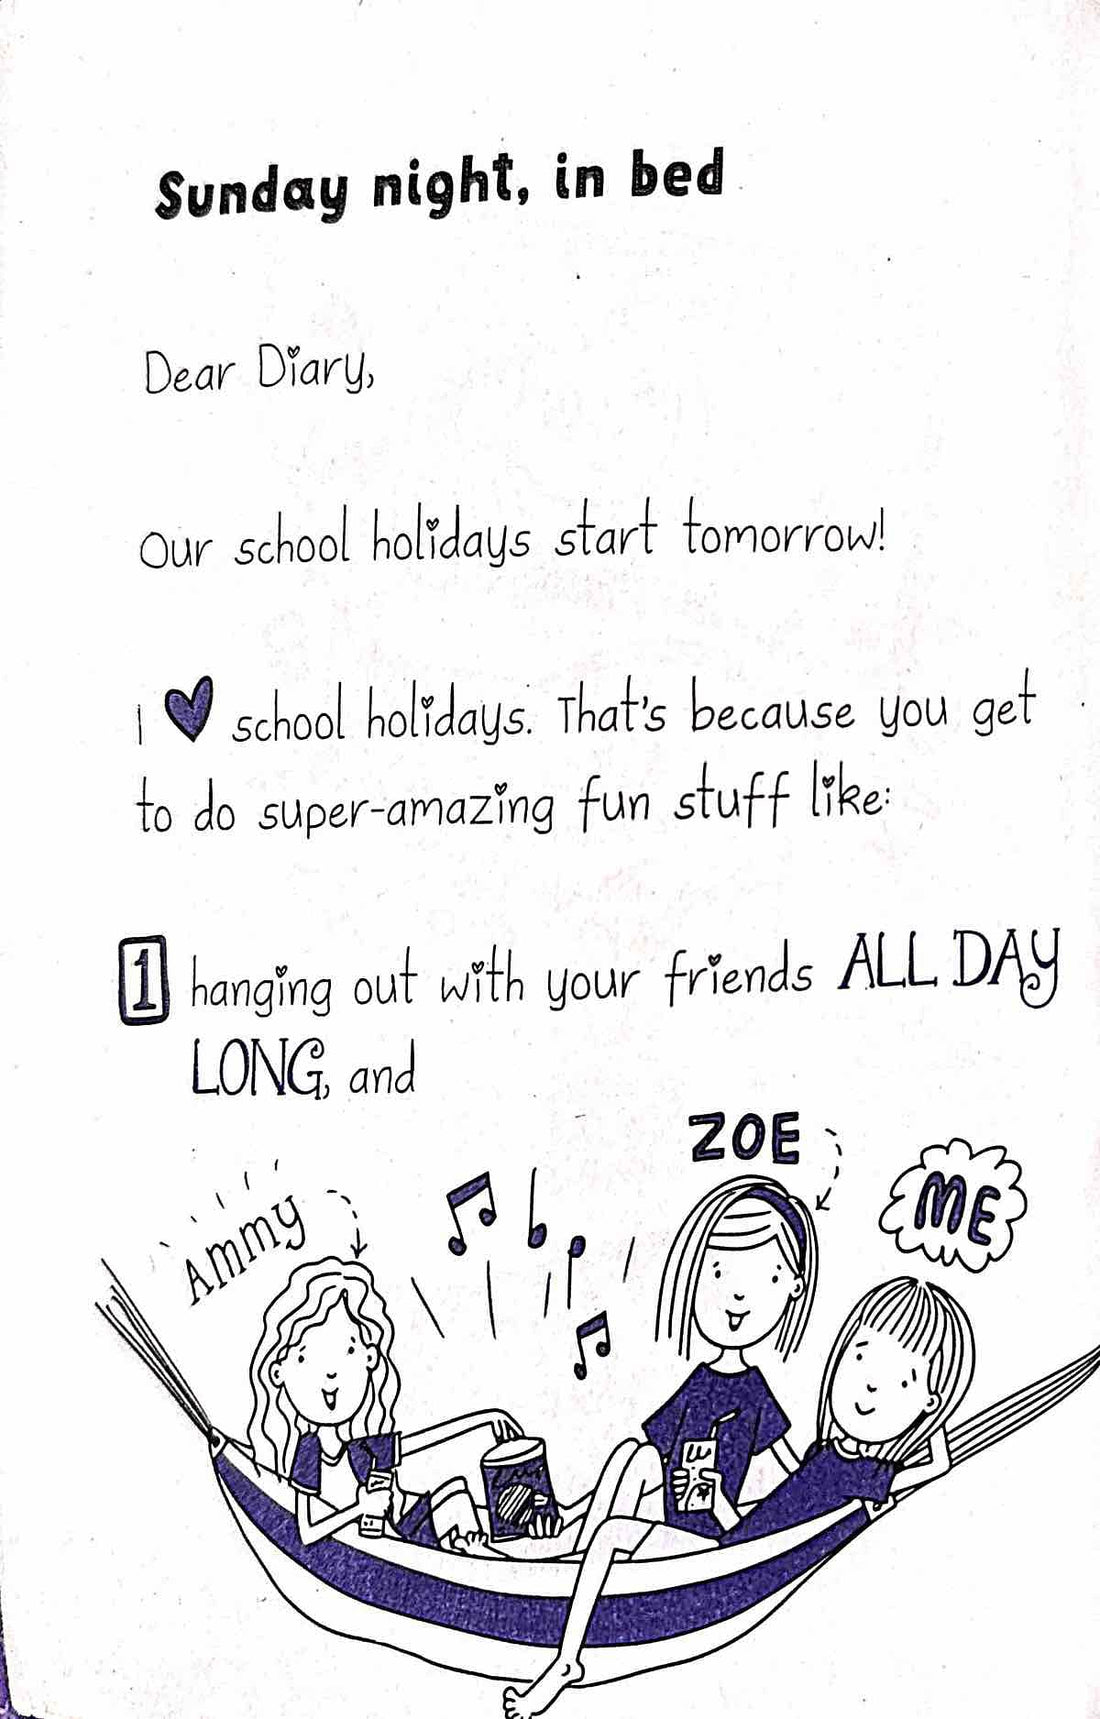 Sunday night, in bed
Dear Diary,
Our school holidays start tomorrow!
I ♥ school holidays. That's because you get
to do super-amazing fun stuff like:
1 hanging out with your friends ALL DAY
LONG, and
Ammy
ZOE
ME